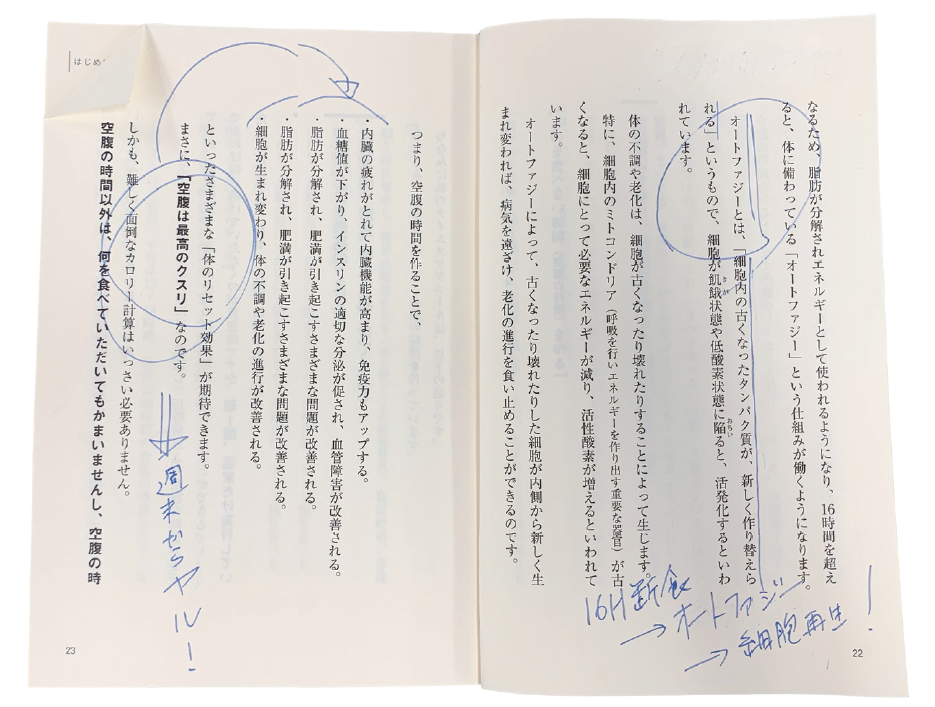 なるため、脂肪が分解されエネルギーとして使われるようになり、16時間を超え
ると、体に備わっている「オートファジー」という仕組みが働くようになります。
オートファジーとは、「細胞内の古くなったタンパク質が、新しく作り替えら
れる」というもので、細胞が飢餓状態や低酸素状態に陥ると、活発化するといわ
れています。
体の不調や老化は、細胞が古くなったり壊れたりすることによって生じます。
特に、細胞内のミトコンドリア（呼吸を行いエネルギーを作り出す重要な器官）が古
くなると、細胞にとって必要なエネルギーが減り、活性酸素が増えるといわれて
います。
オートファジーによって、古くなったり壊れたりした細胞が内側から新しく生
まれ変われば、病気を遠ざけ、老化の進行を食い止めることができるのです。
16H断食
→オートファジー
→細胞再生!
22
はじめ
つまり、空腹の時間を作ることで、
・内臓の疲れがとれて内臓機能が高まり、免疫力もアップする。
・血糖値が下がり、インスリンの適切な分泌が促され、血管障害が改善される。
・脂肪が分解され、肥満が引き起こすさまざまな問題が改善される。
・脂肪が分解され、肥満が引き起こすさまざまな問題が改善される。
・細胞が生まれ変わり、体の不調や老化の進行が改善される。
といったさまざまな「体のリセット効果」が期待できます。
まさに、「空腹は最高のクスリ」なのです。
⇒週末からヤル!
しかも、難しく面倒なカロリー計算はいっさい必要ありません。
空腹の時間以外は、何を食べていただいてもかまいませんし、空腹の時
23